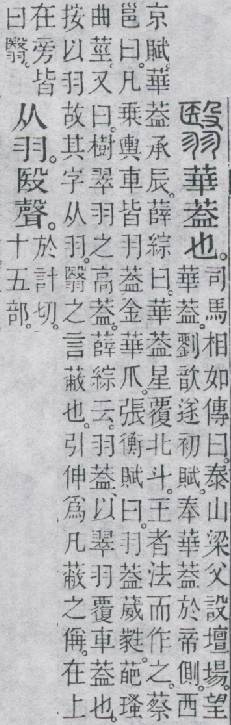 翳 華葢也。司馬相如傳曰。泰山梁父設壇場。望
華葢。劉歆遂初賦。奉華葢於帝側。西
京賦。華葢承辰。薛綜曰。華葢星覆北斗。王者法而作之。蔡
邕曰。凡乘輿車皆羽葢金華爪。張衡賦曰。羽葢葳蕤。葩瑵
曲莖。又曰。樹翠羽之高葢。薛綜云。羽葢、以翠羽覆車葢也。
按以羽故其字从羽。翳之言蔽也。引伸爲凡蔽之偁。在上
在旁皆
曰翳。
从羽。殹聲。
於計切。
十五部。